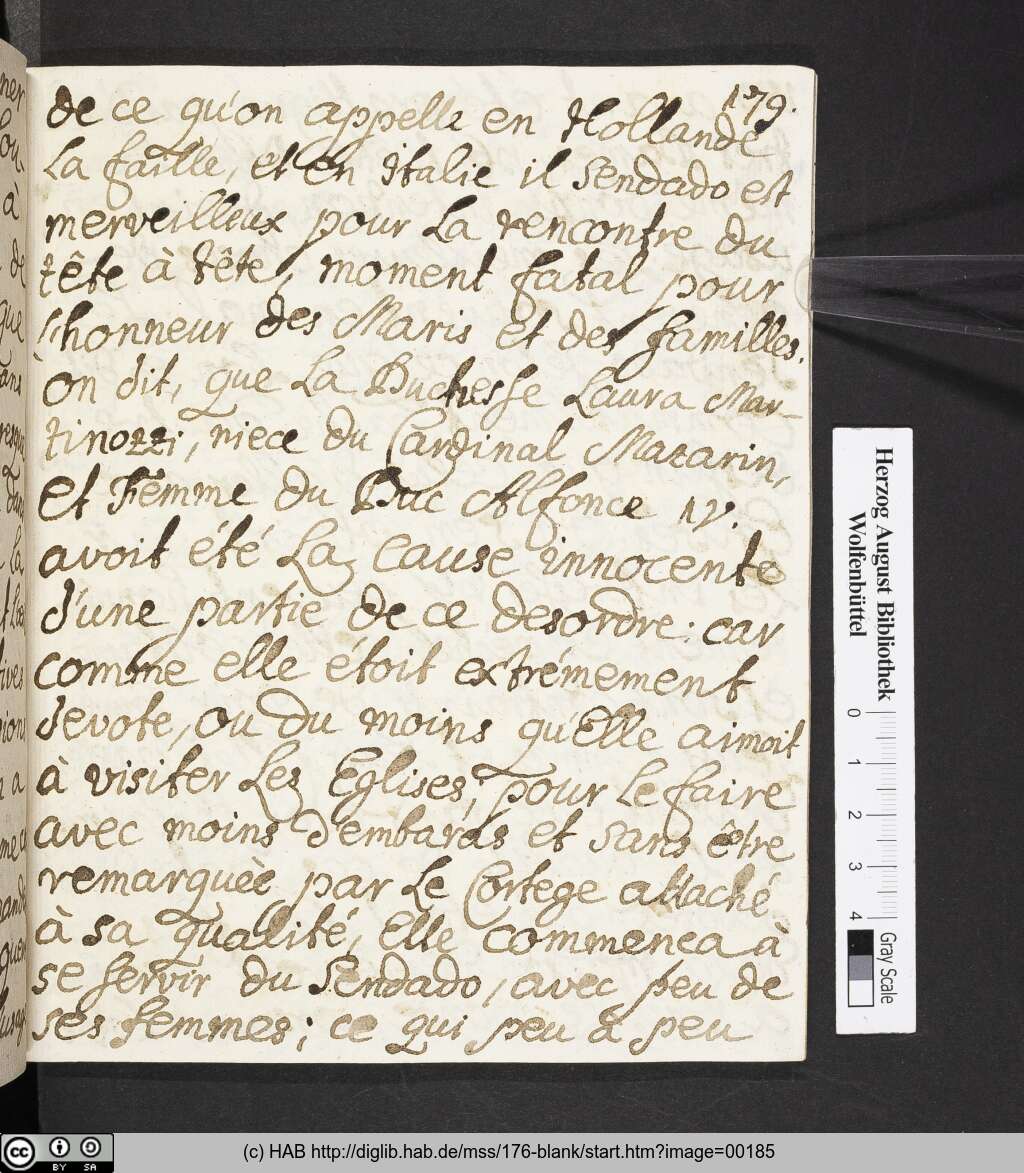 179.
de ce qu'on appelle en Hollande
La faille, et en Italie il Sendado est
merveilleux pour La rencontre du
tête à tête, moment fatal pour
l'honneur des Maris et des familles.
On dit, que La Duchesse Laura Mar-
tinozzi, niece du Cardinal Mazarin,
et Femme du Duc Alfonce IV.
avoit été La cause innocente
d'une partie de ce desordre: car
comme elle étoit extrémement
devote, ou du moins qu'Elle aimoit
à visiter Les Eglises, pour Le faire
avec moins d'embaras et sans être
remarquèe par Le Cortege attaché
à sa qualité, Elle commenca à
se servir du Sendado, avec peu de
ses femmes; ce qui peu à peu
Herzog August Bibliothek
Wolfenbüttel
0 1 2 3 4
Gray Scale
cc BY SA
(c) HAB http://diglib.hab.de/mss/176-blank/start.htm?image=00185